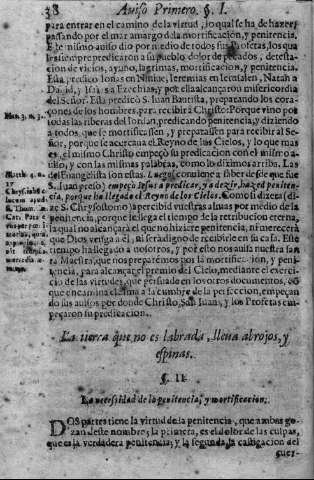 38 Auiso Primero. §. I.
para entrar en el camino de la virtud, lo qual se ha de hazer,
passando por el mar amargo de la mortificacion, y penitencia.
Este mismo auiso dio por medio de todos sus Profetas, los quales
siempre predicaron a su pueblo, dolor de pecados, detestacion
de vicios, ayuno, lagrimas, mortificacion, y penitencia.
Esta predicò Ionas en Niniue, Ieremias en Ierusalen, Natan a
Dauid, y Isaias a Ezechias, y por ella alcançaron misericordia
del Señor. Esta predicò S. Iuan Bautista, preparando los coraçones
de los hombres, para recibir a Christo: Porque vino por
Mat. 3. n. 3.
todas las riberas del Iordan predicando penitencia, y diziendo
a todos, que se mortificassen, y preparassen para recibir al Señor,
porque se acercaua el Reyno de los Cielos, y lo que mas
es, el mismo Christo empeçò su predicacion con el mismo auiso,
y con las mismas palabras, como diximos arriba. Las
Matth. 4. n.
17
del Euangelista son estas. Luego (conuiene a saber desde que fue
S. Iuan preso) empeçò Iesus a predicar, y a dezir, hazed penitencia,
porque ha llegado el Reyno de los Cielos. Como si dixera (dize
S. Chrysostomo) apercibid vuestras almas por medio de la
penitencia, porque se llega el tiempo de la retribucion eterna,
la qual no alcançarà el que no hiziere penitencia, ni merecerà
que Dios venga a el, ni serà digno de recibirle en su casa. Este
tiempo ha llegado a nosotros, y por esto nos auisa nuestra santa
Maestra, que nos preparemos por la mortificacion, y penitencia,
para alcançar el premio del Cielo, mediante el exercicio
de las virtudes, que persuade en los otros documentos, con
que encamina el alma a la cumbre de la perfeccion, empeçando
sus auisos por donde Christo, San Iuan, y los Profetas empeçaron
su predicacion.
La tierra que no es labrada, lleua abrojos, y
espinas.
§. II.
La necessidad de la penitencia, y mortificacion.
DOs partes tiene la virtud de la penitencia, que ambas gozan
deste nombre; la primera, es el dolor de las culpas,
que es la verdadera penitencia; y la segunda, la castigacion del
cuer-